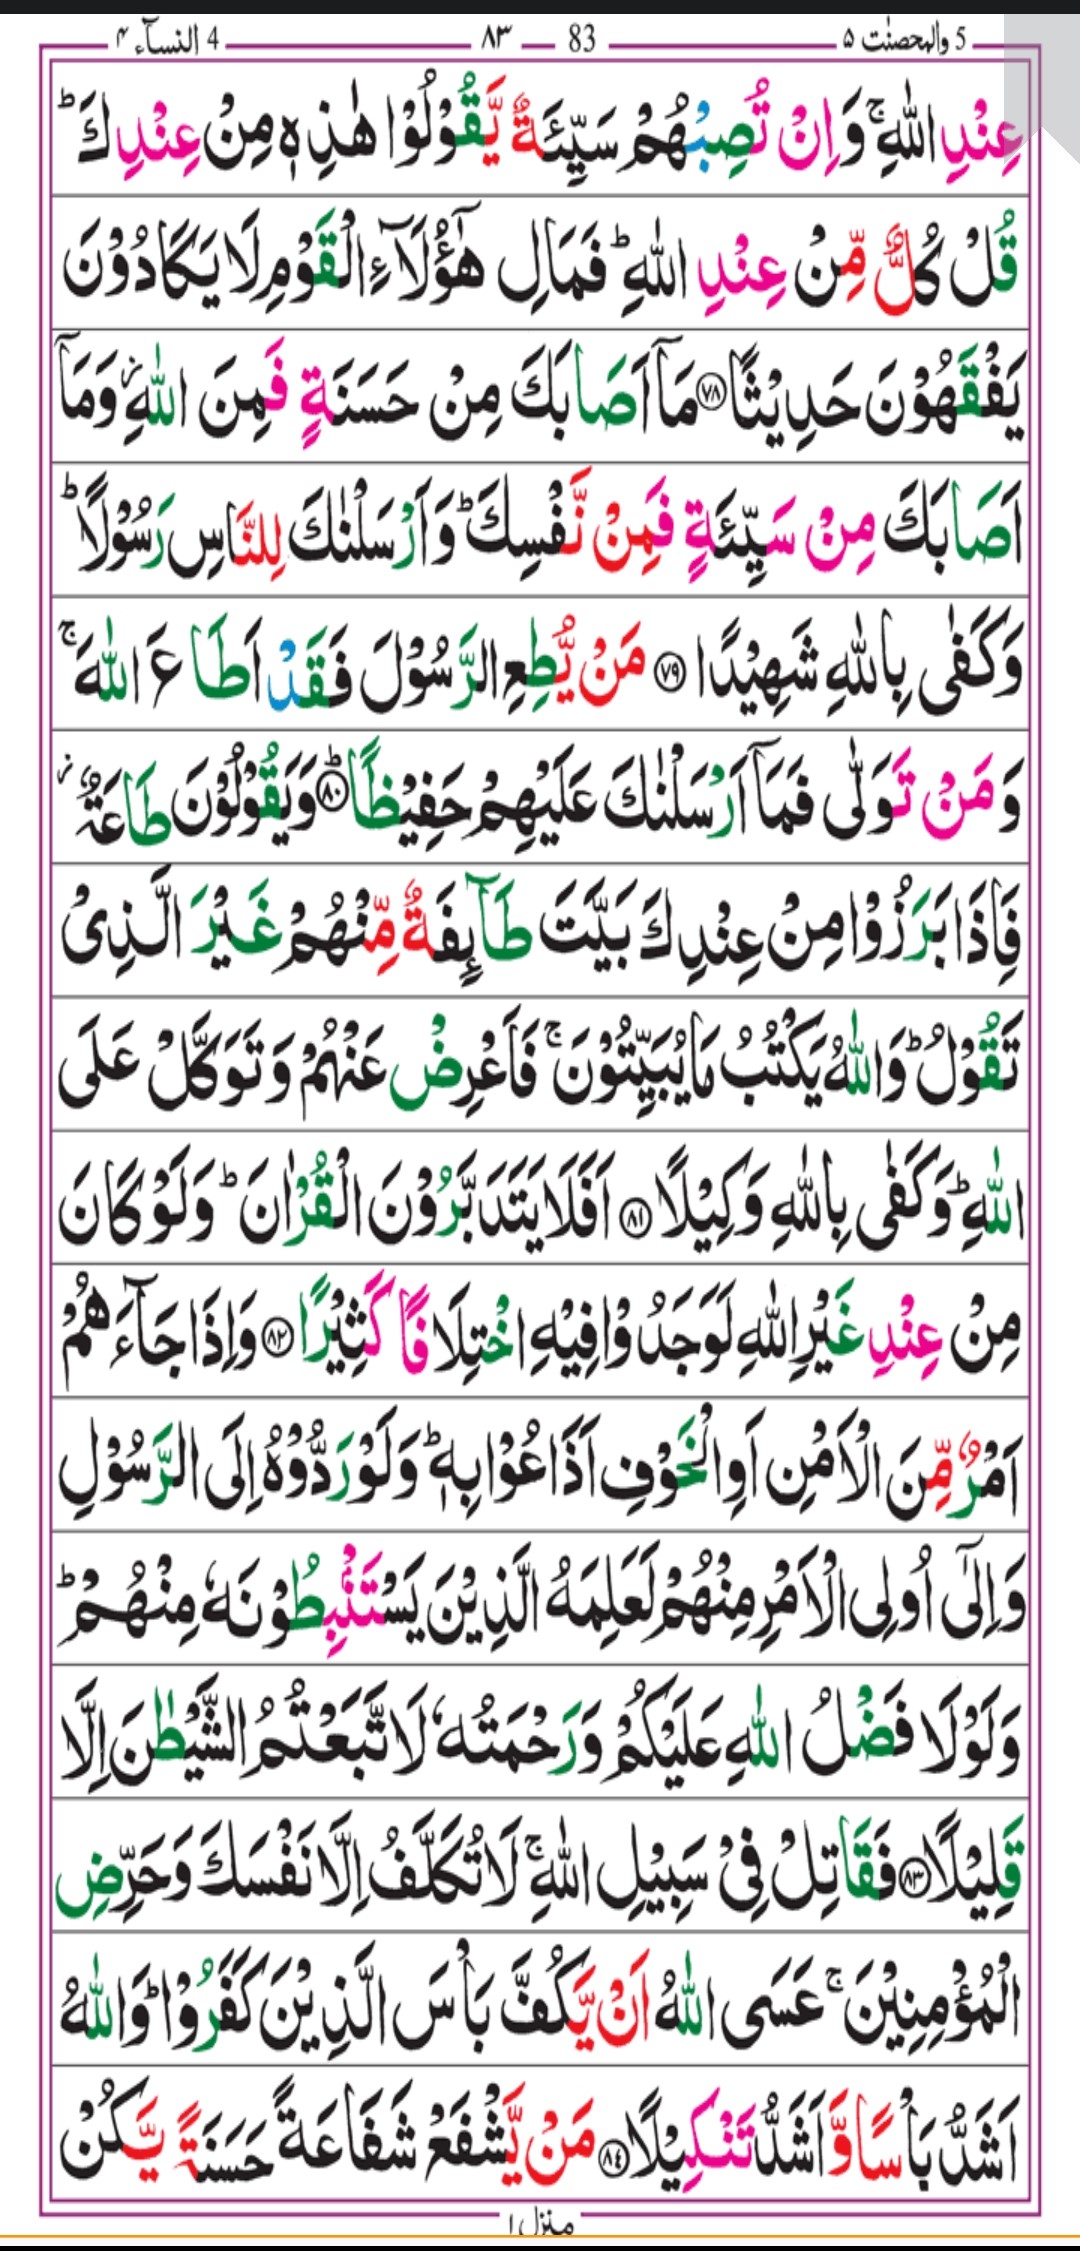 5 والمحصنٰت ۵ 83 ۸۳ 4 النسآء ۴
عِنْدِ اللّٰهِ ۚ وَ اِنْ تُصِبْهُمْ سَیِّئَةٌ یَّقُوْلُوْا هٰذِهٖ مِنْ عِنْدِكَ ؕ
قُلْ كُلٌّ مِّنْ عِنْدِ اللّٰهِ ؕ فَمَالِ هٰۤؤُلَآءِ الْقَوْمِ لَا یَكَادُوْنَ
یَفْقَهُوْنَ حَدِیْثًا ﴿۷۸﴾ مَاۤ اَصَابَكَ مِنْ حَسَنَةٍ فَمِنَ اللّٰهِ ؗ وَمَاۤ
اَصَابَكَ مِنْ سَیِّئَةٍ فَمِنْ نَّفْسِكَ ؕ وَاَرْسَلْنٰكَ لِلنَّاسِ رَسُوْلًا ؕ
وَكَفٰی بِاللّٰهِ شَهِیْدًا ﴿۷۹﴾ مَنْ یُّطِعِ الرَّسُوْلَ فَقَدْ اَطَاعَ اللّٰهَ ۚ
وَ مَنْ تَوَلّٰی فَمَاۤ اَرْسَلْنٰكَ عَلَیْهِمْ حَفِیْظًا ﴿ؕ۸۰﴾ وَیَقُوْلُوْنَ طَاعَةٌ ؗ
فَاِذَا بَرَزُوْا مِنْ عِنْدِكَ بَیَّتَ طَآىِٕفَةٌ مِّنْهُمْ غَیْرَ الَّذِیْ
تَقُوْلُ ؕ وَاللّٰهُ یَكْتُبُ مَا یُبَیِّتُوْنَ ۚ فَاَعْرِضْ عَنْهُمْ وَ تَوَكَّلْ عَلَی
اللّٰهِ ؕ وَكَفٰی بِاللّٰهِ وَكِیْلًا ﴿۸۱﴾ اَفَلَا یَتَدَبَّرُوْنَ الْقُرْاٰنَ ؕ وَلَوْ كَانَ
مِنْ عِنْدِ غَیْرِ اللّٰهِ لَوَجَدُوْا فِیْهِ اخْتِلَافًا كَثِیْرًا ﴿۸۲﴾ وَاِذَا جَآءَهُمْ
اَمْرٌ مِّنَ الْاَمْنِ اَوِ الْخَوْفِ اَذَاعُوْا بِهٖ ؕ وَلَوْ رَدُّوْهُ اِلَی الرَّسُوْلِ
وَاِلٰۤی اُولِی الْاَمْرِ مِنْهُمْ لَعَلِمَهُ الَّذِیْنَ یَسْتَنْۢبِطُوْنَهٗ مِنْهُمْ ؕ
وَلَوْلَا فَضْلُ اللّٰهِ عَلَیْكُمْ وَرَحْمَتُهٗ لَاتَّبَعْتُمُ الشَّیْطٰنَ اِلَّا
قَلِیْلًا ﴿۸۳﴾ فَقَاتِلْ فِیْ سَبِیْلِ اللّٰهِ ۚ لَا تُكَلَّفُ اِلَّا نَفْسَكَ وَحَرِّضِ
الْمُؤْمِنِیْنَ ۚ عَسَی اللّٰهُ اَنْ یَّكُفَّ بَاْسَ الَّذِیْنَ كَفَرُوْا ؕ وَاللّٰهُ
اَشَدُّ بَاْسًا وَّاَشَدُّ تَنْكِیْلًا ﴿۸۴﴾ مَنْ یَّشْفَعْ شَفَاعَةً حَسَنَةً یَّكُنْ
منزل ۱